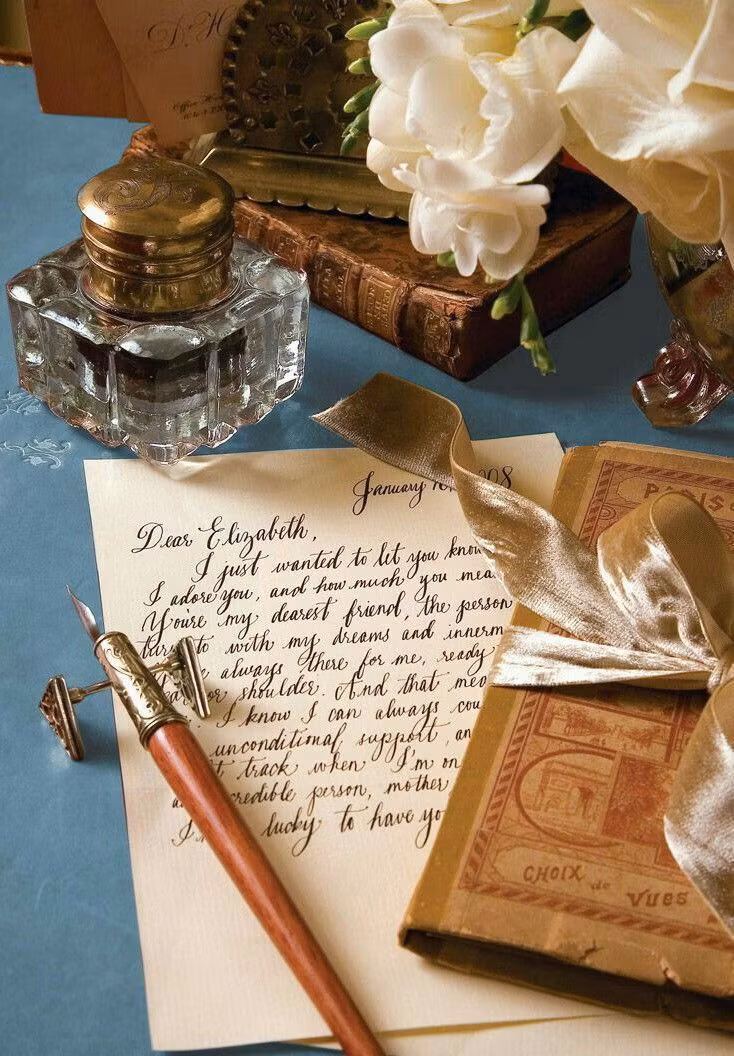 January
Dear Elizabeth,
I just wanted to let you know
I adore you, and how much you
You're my dearest friend, the person
to with my dreams and
always there for me, ready
or shoulder. And that
I know I can always
unconditional support,
track when I'm
person, mother
lucky to have
PARIS
CHOIX de VUES